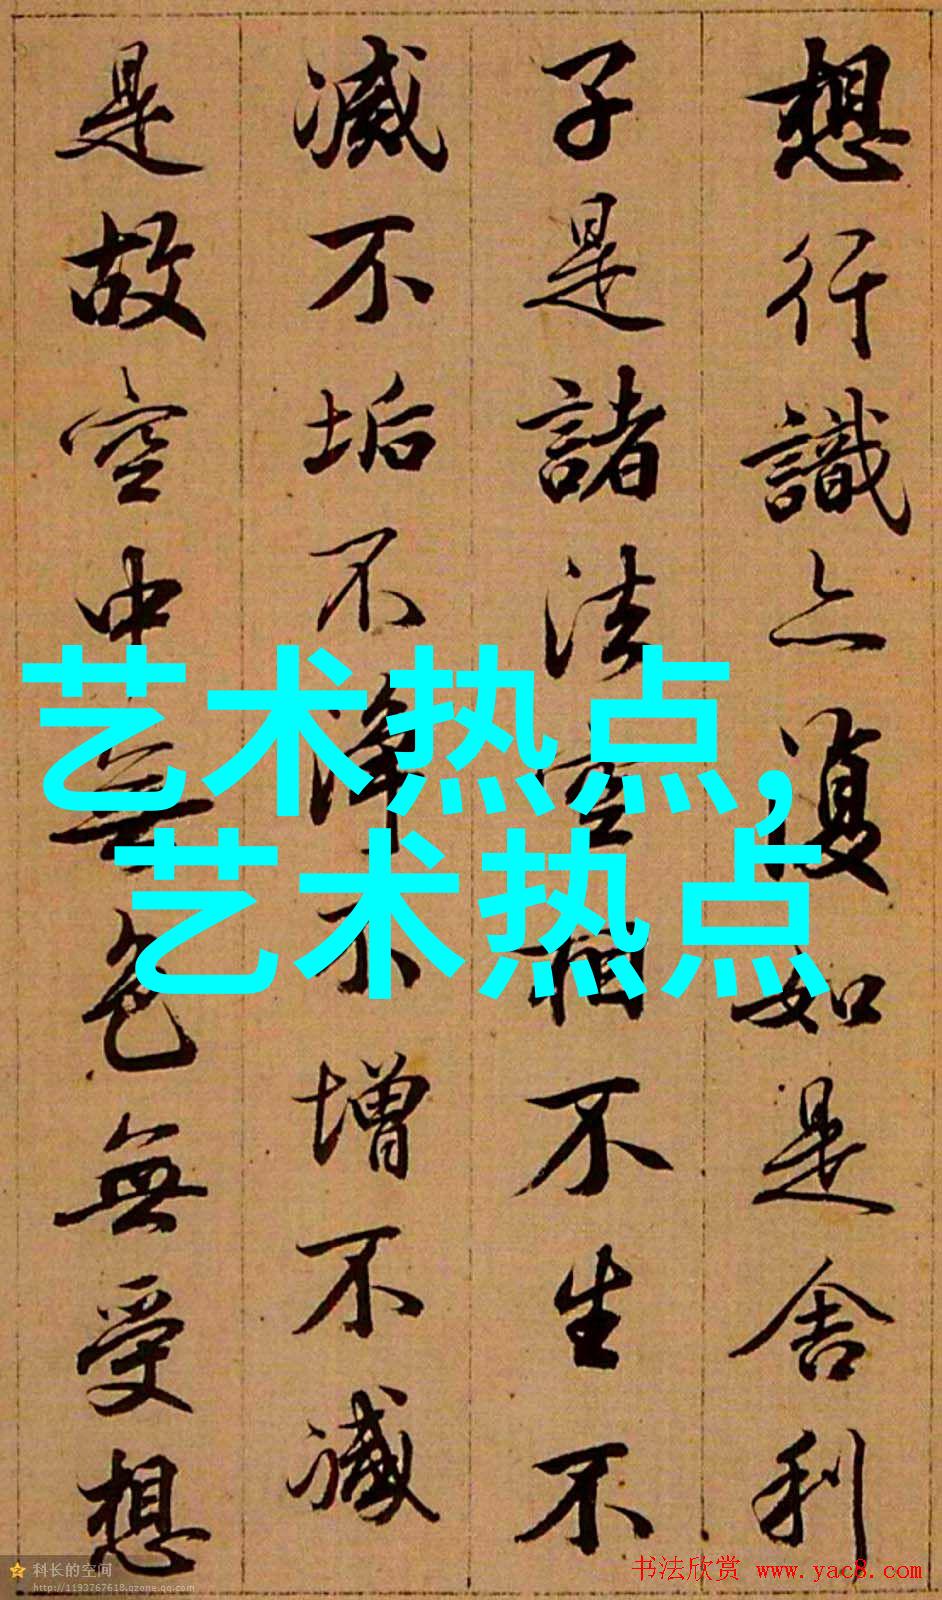 想行識亦復如是舍利
子是諸法空相不生不
滅不垢不淨不增不減
是故空中無色無受想
艺术热点,
艺术热点
科长的空间
http://1193767618.qzone.qq.com
书法欣赏 www.yac8.com